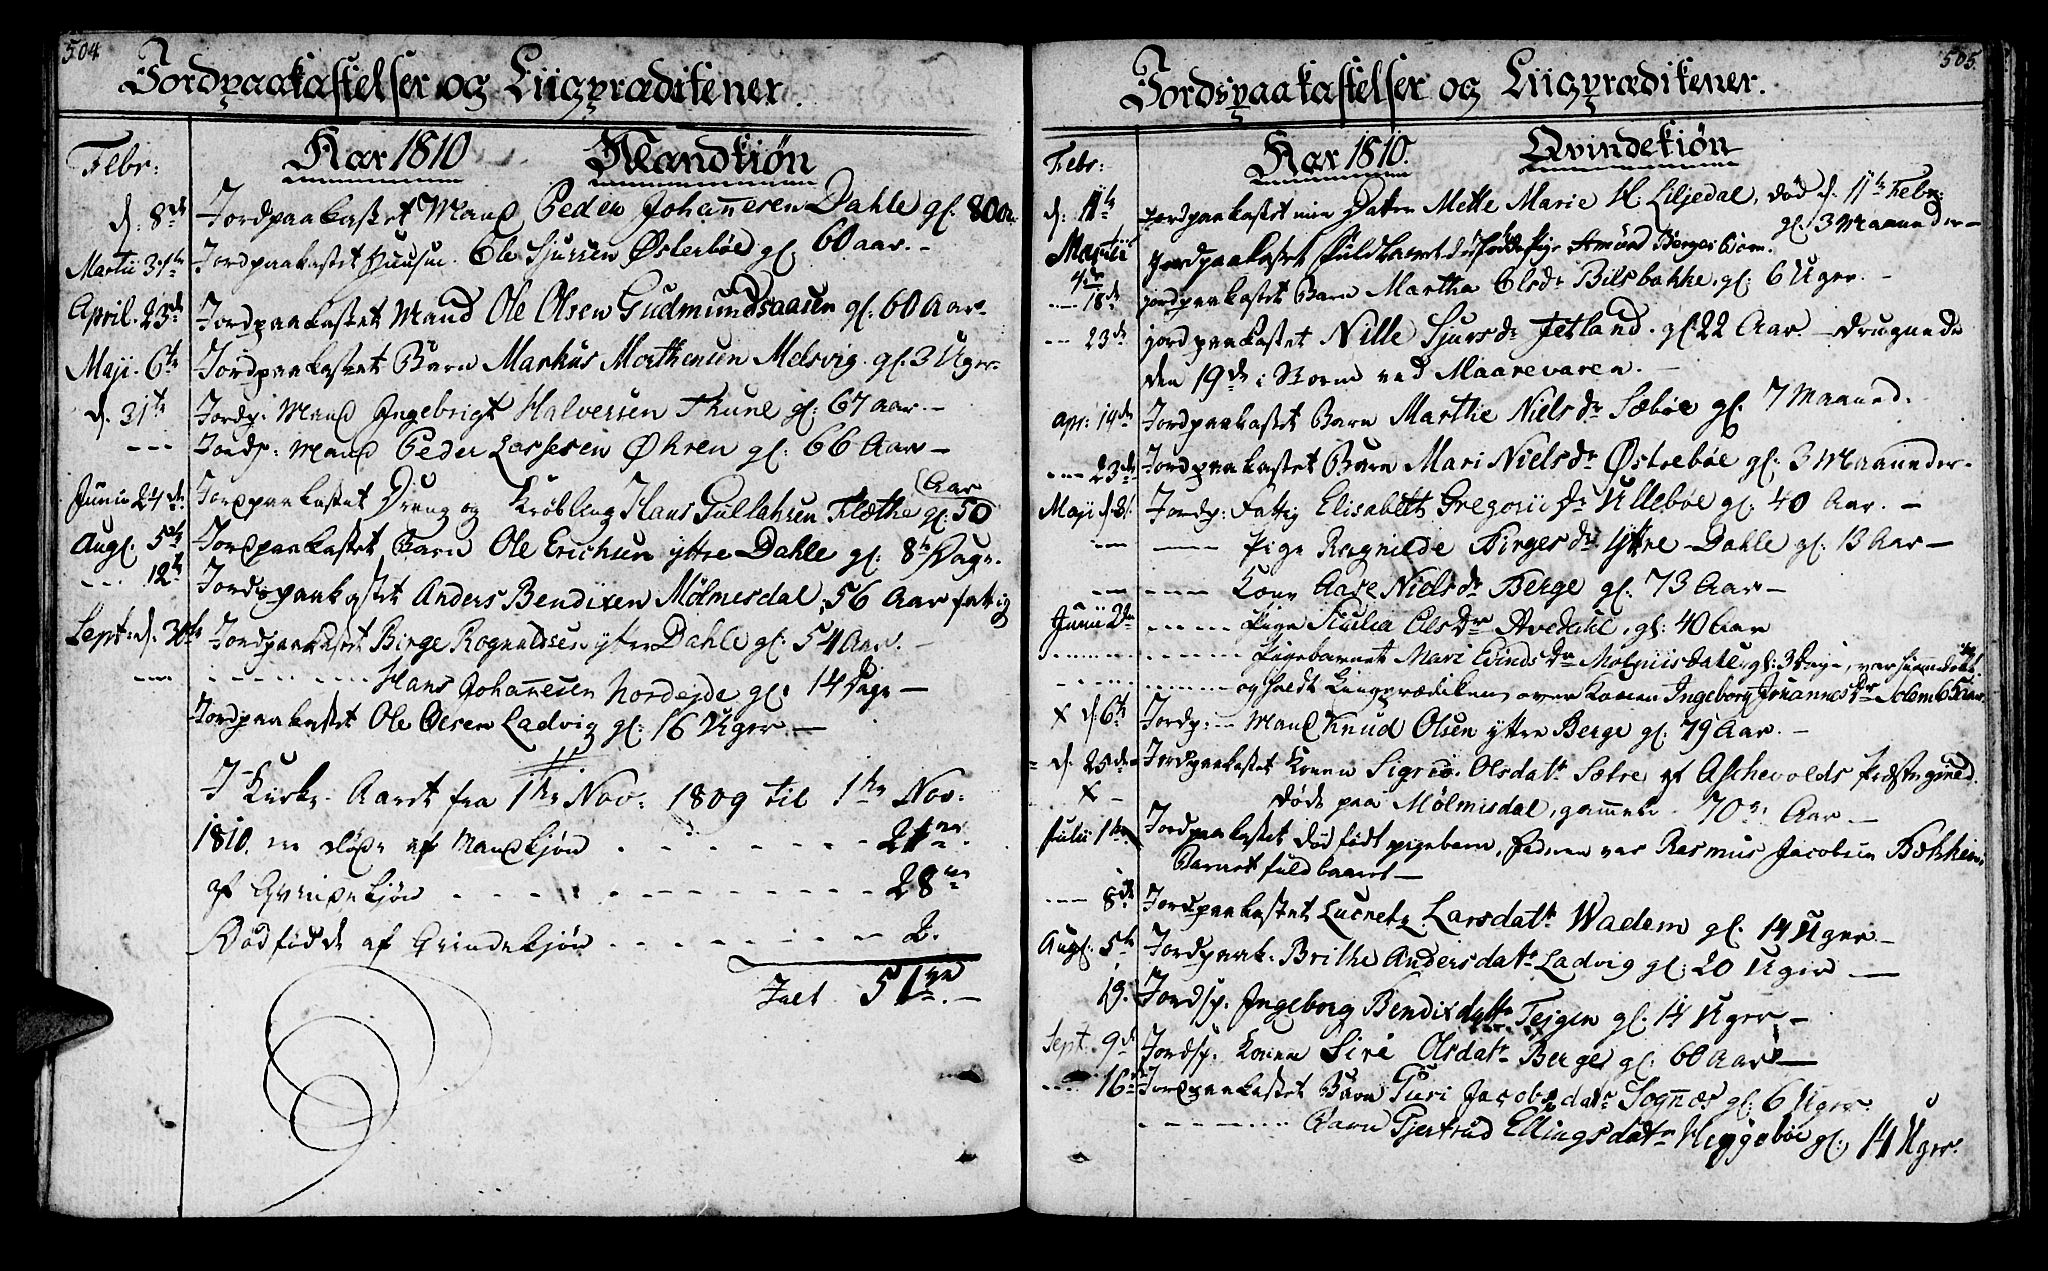 504
Jordpaakastelser og Liigprædikener.
Aar 1810 Mandkiøn
Febr:
d. 8de Jordpaakastet Mand Peder Johannesen Dahle gl. 80 aar
Martii 31te Jordpaakastet Huusm. Ole Sjursen Østerbøe gl. 60 aar. –
April. 23de Jordpaakastet Mand Ole Olsen Gudmundsaasen gl. 60 Aar.
Maji. 6te Jordpaakastet Barn Markus Morthensen Melsvig. gl. 3 Uger.
d. 31te Jordp: Mand Ingebrigt Halversen Thune gl. 67 aar. –
--- Jordp: Mand Peder Lassesen Øhren gl. 66 Aar –
Junii 24de Jordpaakastet Dreng og Krøbling Hans Gullaksen Flæthe gl. 50 Aar
Augl. 5te Jordpaakastet Barn Ole Erichsen yttre Dahle gl. 8te Dage.
--- 12te Jordspaakastet Anders Bendixen Mølmesdal, 56 Aar fattig
Sept: d. 30te Jordpaakastet Birge Rognaldsen ytter Dahle gl. 54 Aar. –
--- Hans Johannesen Nordejde gl. 14 Dage –
Jordpaakastet Ole Olsen Ladvig gl. 16 Uger. –
I Kirke-Aaret fra 1te Nov: 1809 til 1te Nov:
1810. ere døde af Mandkjøn 21
af Qvindekjøn 28
Dødfødde af Qvindekjøn 2.
Ialt 51
505.
Jordspaakastelser og Liigprædikener.
Aar 1810. Qvindekiøn
Febr:
d. 11te Jordpaakastet min Datter Mette Marie H. Liljedal, død d. 11te Febr.
gl. 3 Maaneder –
Martii 4de Jordpaakastet fuldbaaret dødfødde Pige Amund Berges Barn.
--- 18de jordpaakastet Barn Martha Olsdr Bilsbakke. gl. 6 Uger. –
--- 23de jordpaakastet Nille Sjursdr Jetland. gl. 22 Aar – druknede
den 19de i Storm ved Maarevaren. –
Apr: 19de Jordpaakastet Barn Marthe Nielsdr Sæbøe gl. 7 Maaned.
--- 23de Jordpaakastet Barn Mari Nielsdr Østrebøe gl. 3 Maaneder.
Maji d. 8. Jordp: Fattig Elisabeth Gregoriidr Ullebøe gl. 40 Aar. –
--- Pige Ragnilde Birgesdr Yttre-Dahle gl. 13 Aar –
--- Kone Aase Nielsdr Berge gl. 73 Aar –
Junii 2den Pige Siulia Olsdr Avedahl, gl. 40 Aar
Pigebarnet Mari Evindsdr Molmisdale, gl. 3 Dage, var hjemmedøbt
og holdt Liigprædiken over Konen Ingeborg Johannesdr Solem 65 Aar.
× d. 6te Jordp: Mand Knud Olsen yttre Berge gl. 79 Aar. –
d. 25de Jordpaakastet Konen Sigrid Olsdatr Sætre af Aschevolds Præstegield.
× – døde paa Mølmisdal, gammel 70 Aar –
Julii 1te Jordpaakastet dødfødt pigebarn, Faderen var Rasmus Jacobsen Bekken,
Barnet fuldbaaret –
--- 8de Jordpaakastet Lucretz Larsdatr Wadem gl. 14 Uger –
Augl. 5te Jordpaak. Brithe Andersdatr Ladvig gl. 20 Uger –
19. Jordsp. Ingeborg Bendixdatr Tejgen gl. 14 Uger –
Sept. 9de Jordsp. Konen Siri Olsdatr Berge gl. 60 Aar –
--- 16de Jordpaakastet Barn Guri Jacobsdatr Sognæs gl. 6 Uger.
Barn Gjertrud Ellingsdatr Heggebøe gl. 14 Uger.